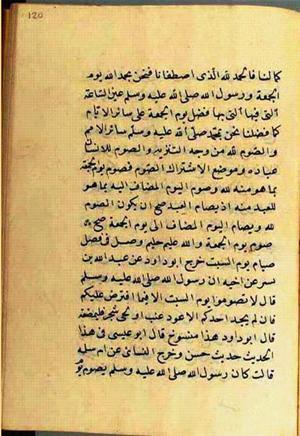 120
كما لنا فالحمد لله الذي اصطفانا فنحن بحمد الله يوم
الجمعة ورسول الله صلى الله عليه وسلم عين الساعة
التي فيها التي بها فضل يوم الجمعة على سائر الايام
كما فضلنا نحن بمحمد صلى الله عليه وسلم على سائر الامم
والصوم لله من وجه التنزيه والصوم للانسان
عبادة وموضع الاشتراك الصوم فصوم يوم الجمعة
بما هو منه لله وصوم اليوم المضاف اليه بما هو
للعبد منه اذ بصيام العبد صح ان يكون الصوم
لله وبصيام اليوم المضاف الى يوم الجمعة صح
صوم يوم الجمعة والله عليم حليم وصل في فصل
صيام يوم السبت خرج ابو داود عن عبد الله بن
بسر عن اخيه ان رسول الله صلى الله عليه وسلم
قال لا تصوموا يوم السبت الا فيما افترض عليكم
فان لم يجد احدكم الا عود عنب او لحى شجر فليمضغه
قال ابو داود هذا منسوخ قال ابو عيسى في هذا
الحديث حديث حسن وخرج النسائي عن ام سلمة
قالت كان رسول الله صلى الله عليه وسلم يصوم يوم